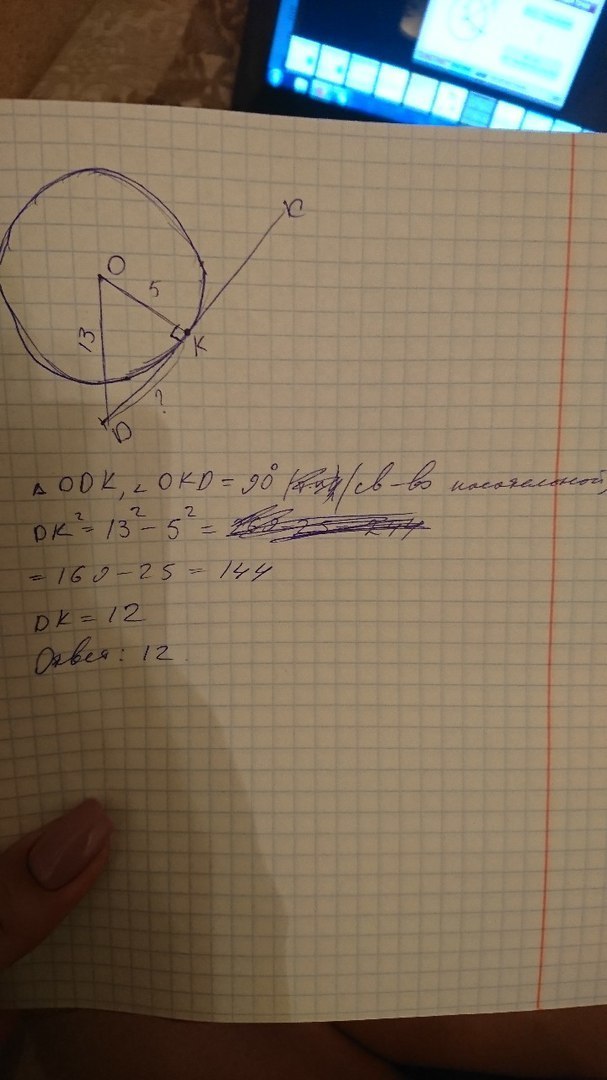 O
5
13
K
D
?
△ ODK, ∠ OKD = 90° (св-во касательной)
DK² = 13² - 5² =
= 169 - 25 = 144
DK = 12
Ответ: 12.